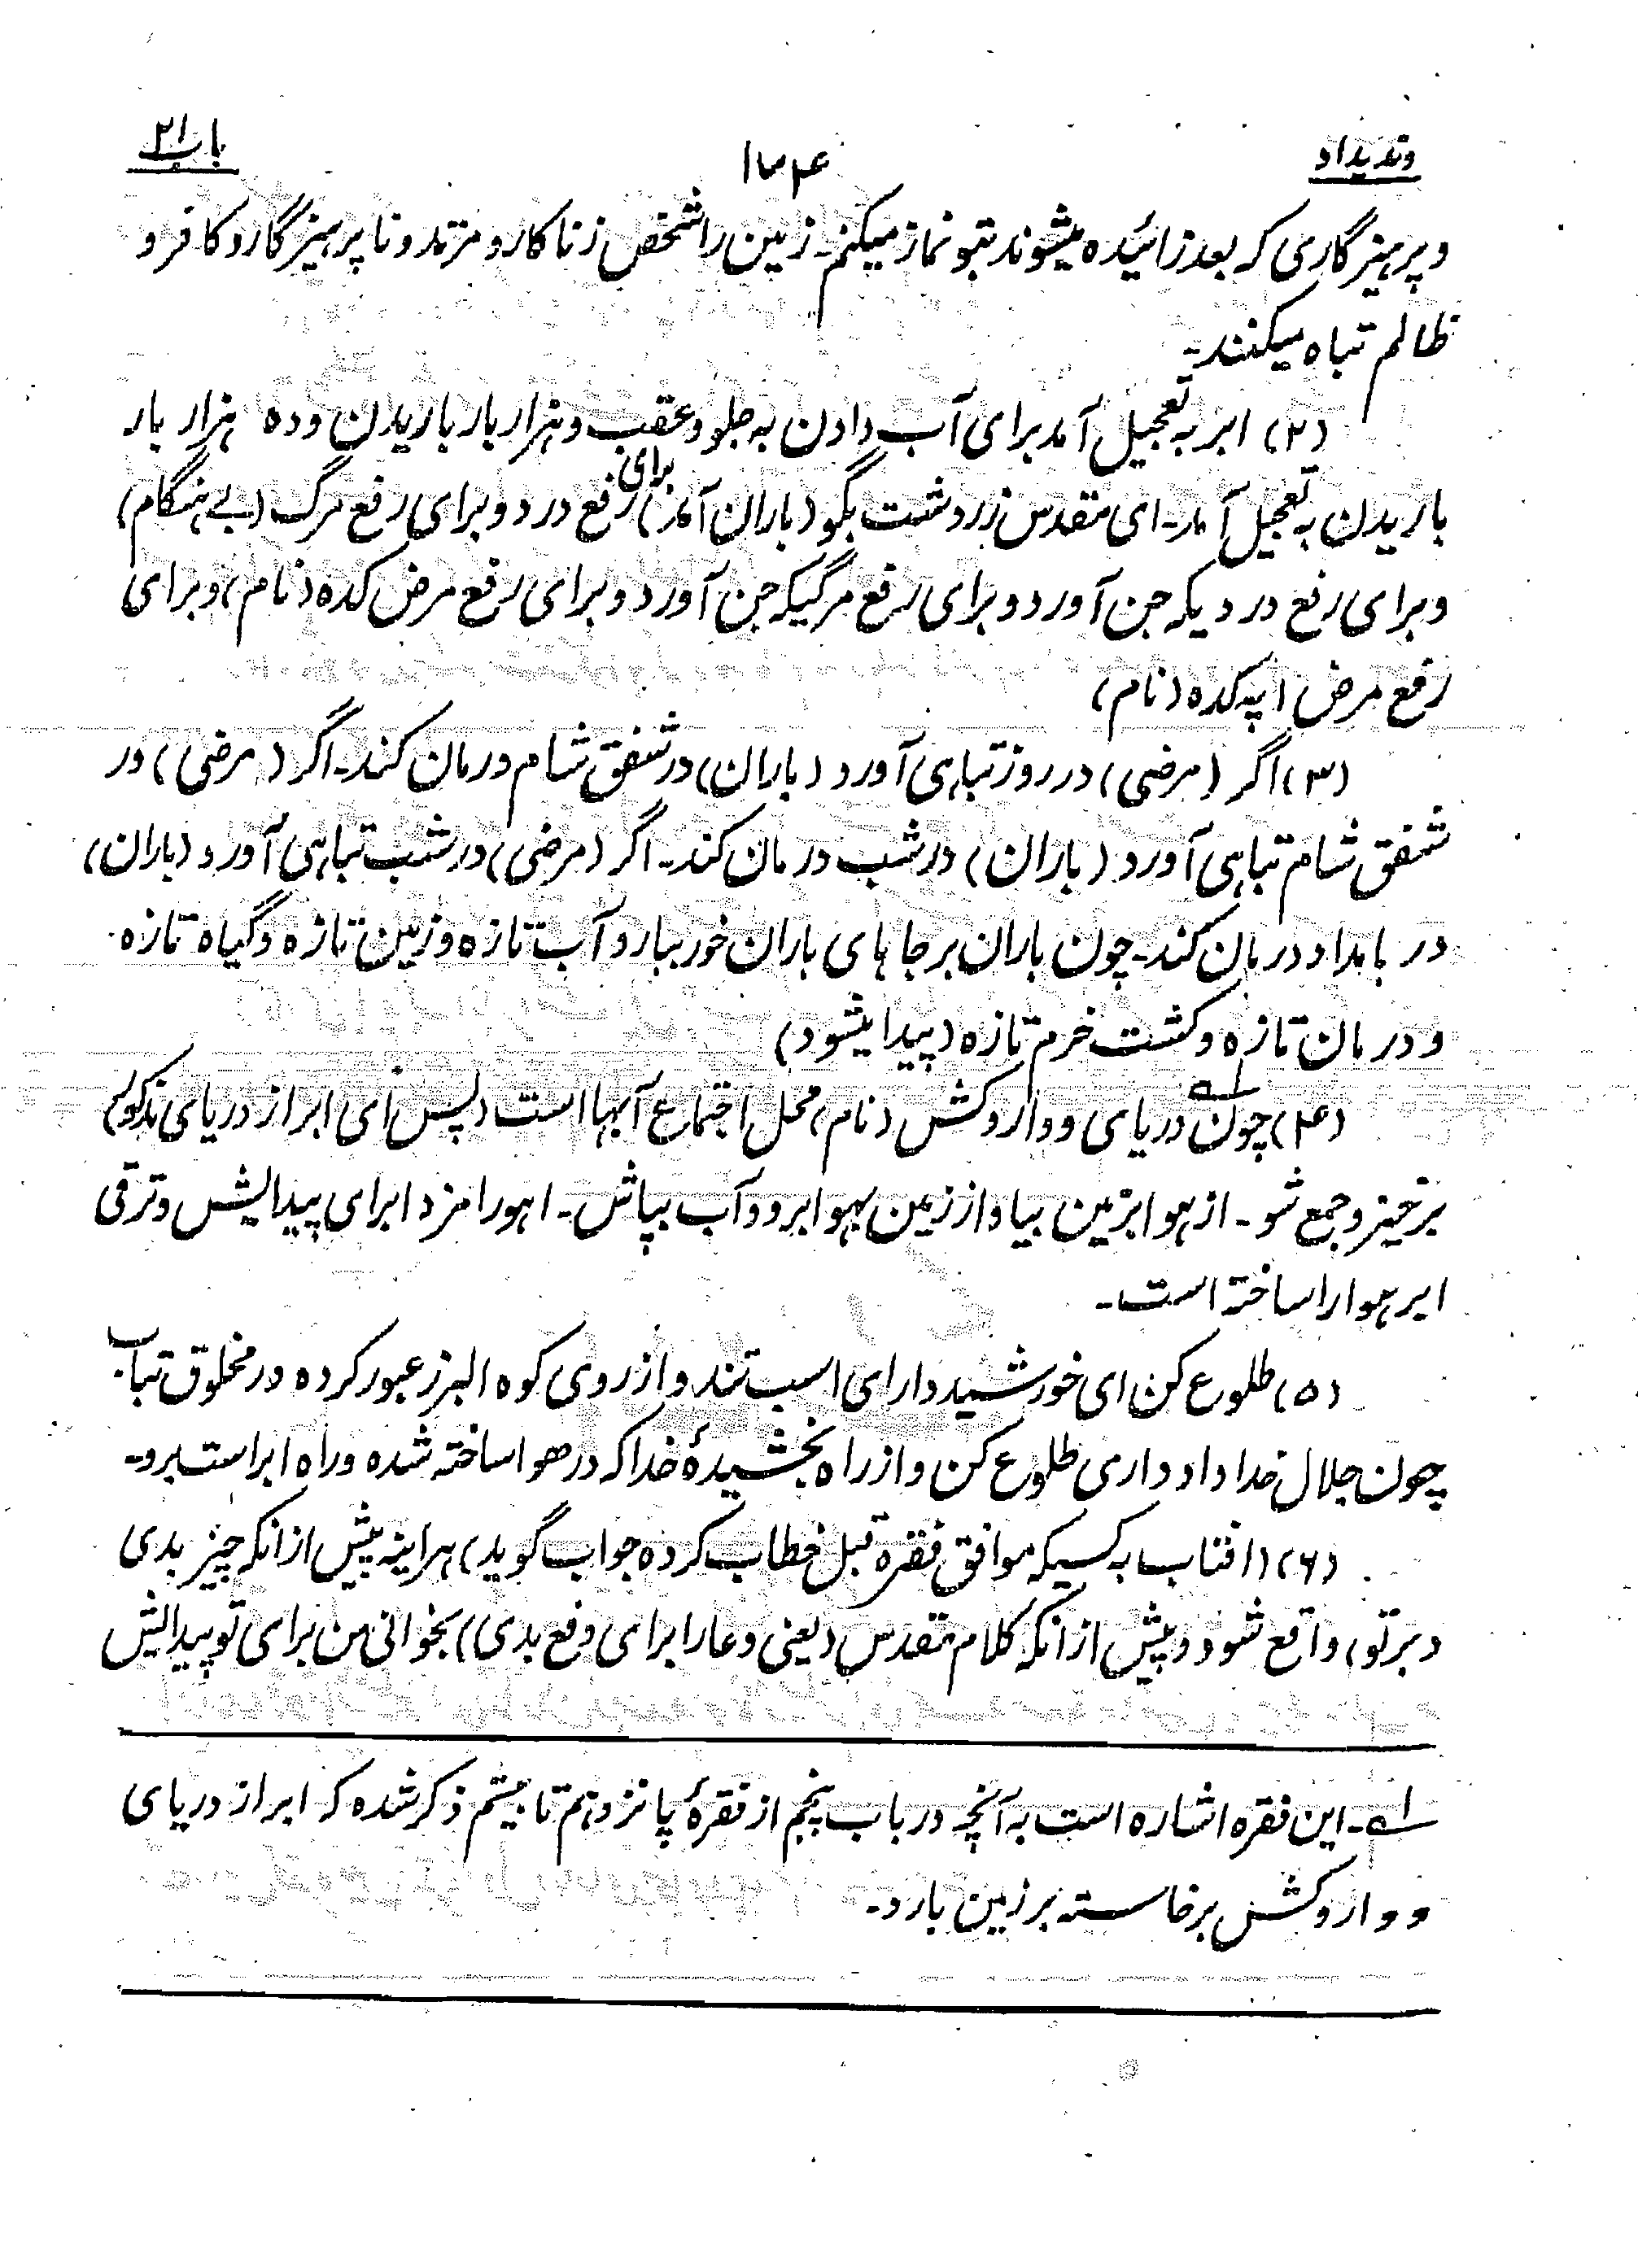 وندیداد ۱۷۴ باب ۲۱
و پرهیزگاری که بعد زائیده میشوند بتو نماز میکنم۔ زمین را شخص زناکار و مرتد و ناپرهیزگار و کافر و
ظالم تباه میکنند۔
(۲) ابر به تعجیل آمد برای آب دادن به جلو و عقب و هزار بار باریدن و ده هزار بار
باریدن به تعجیل آمد۔ ای مقدس زردشت بگو (باران آمد) برای رفع درد و برای رفع مرگ (بے هنگام)
و برای رفع دردیکه جن آورد و برای رفع مرگیکه جن آورد و برای رفع مرض کده (نام) و برای
رفع مرض اپه کده (نام)
(۳) اگر (مرضی) در روز تباهی آورد (باران) در شفق شام درمان کند۔ اگر (مرضی) در
شفق شام تباهی آورد (باران) در شب درمان کند۔ اگر (مرضی) در شب تباهی آورد (باران)
در بامداد درمان کند۔ چون باران بر جاهای باران خور ببارد آب تازه و زمین تازه و گیاه تازه
و درمان تازه و کشت خرم تازه (پیدا میشود)
(۴) چون ۱ دریای ووار و کش (نام) محل اجتماع آبها است (پس ای ابر از دریای مذکور)
برخیز و جمع شو۔ از هوا بزمین بیا و از زمین بهوا برو و آب بپاش۔ اهورامزدا برای پیدایش و ترقی
ابر هوا را ساخته است۔
(۵) طلوع کن ای خورشید دارای اسب تند و از روی کوه البرز عبور کرده در مخلوق بتاب
چون جلال خداداد داری طلوع کن و از راه بخشیدهٔ خدا که در هوا ساخته شده و راه ابر است برو۔
(۶) (افتاب به کسیکه موافق فقره قبل خطاب کرده جواب گوید) هراینه پیش از انکه چیز بدی
(بر تو) واقع شود و پیش از انکه کلام مقدس (یعنی دعا را برای دفع بدی) بخوانی من برای تو پیدایش
۱۔ این فقره اشاره است به آنچه در باب پنجم از فقرهٔ پانزدهم تا بیستم ذکر شده که ابر از دریای
ووار و کش برخاسته بر زمین بارد۔